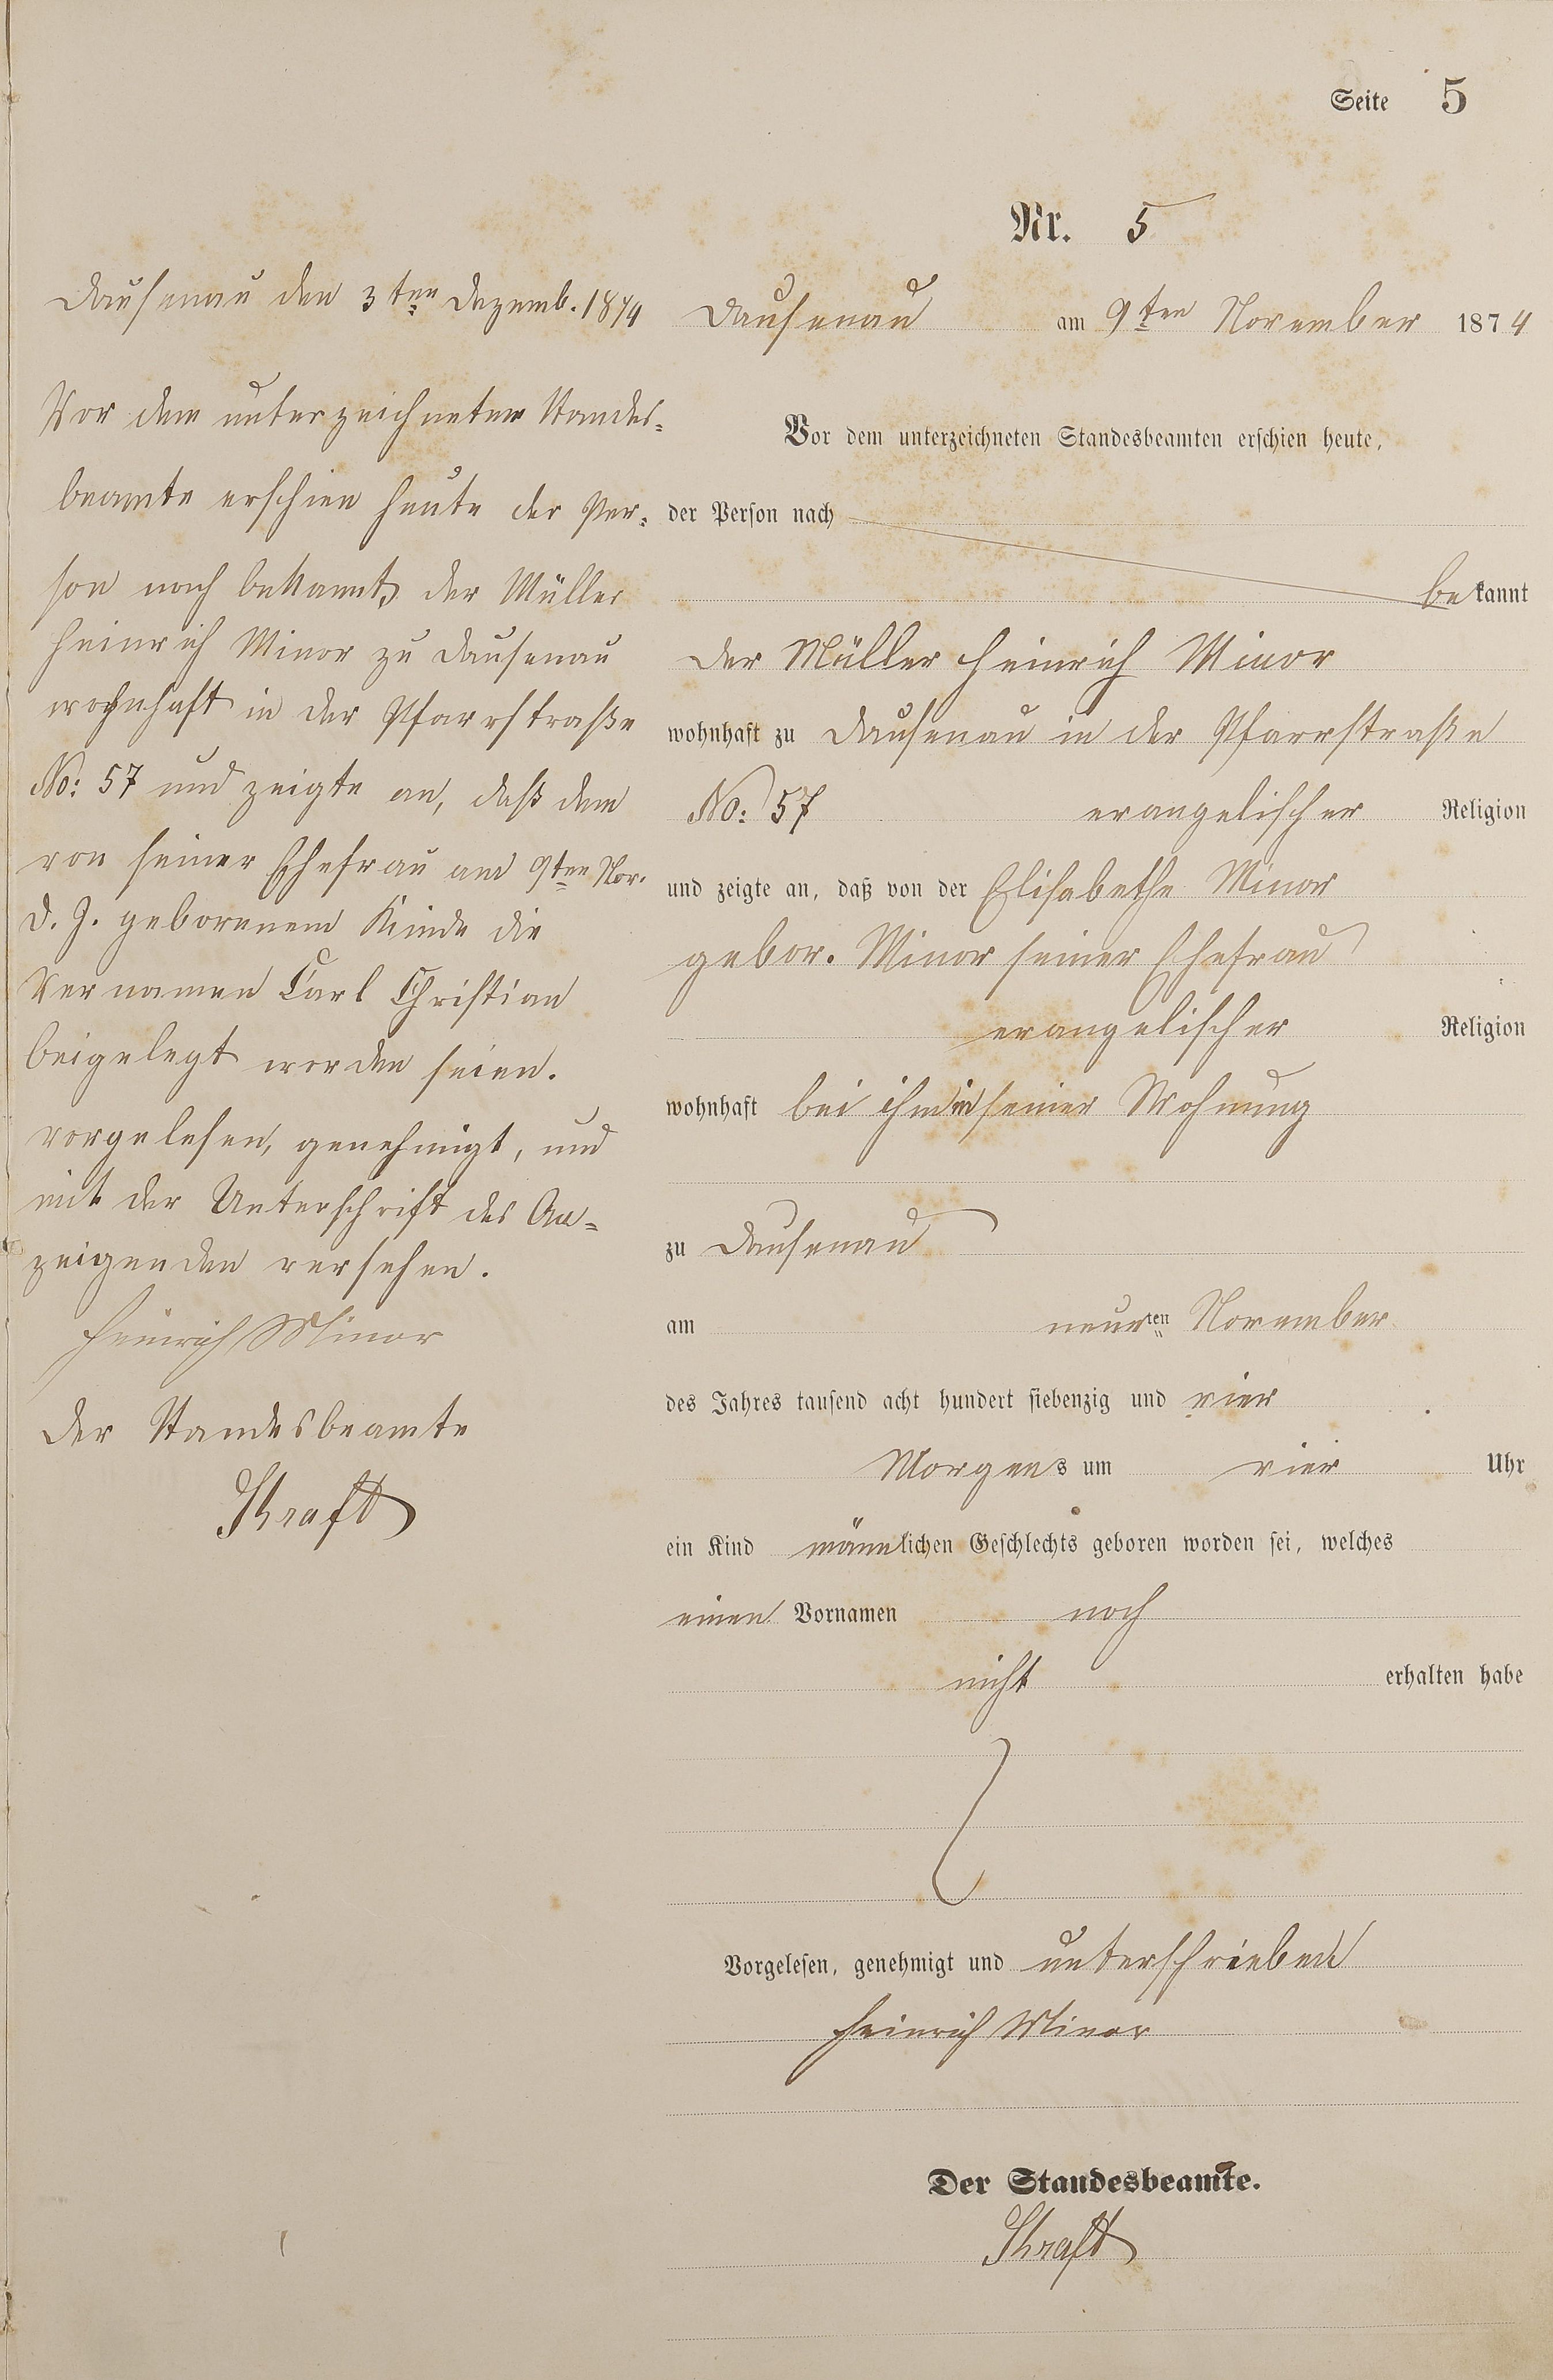 Seite 5
Nr. 5
Dausenau den 3ten Dezemb. 1874
Vor dem unterzeichneten Standes-
beamte erschien heute der Per-
son nach bekannt, der Müller
Heinrich Minor zu Dausenau
wohnhaft in der Pfarrstraße
No: 57 und zeigte an, daß dem
von seiner Ehefrau am 9ten Nov.
d. J. geborenem Kinde die
Vornamen Carl Christian
beigelegt worden seien.
vorgelesen, genehmigt, und
mit der Unterschrift des An-
zeigenden versehen.
Heinrich Minor
Der Standesbeamte
Kraft
Dausenau am 9ten November 1874
Vor dem unterzeichneten Standesbeamten erschien heute,
der Person nach
bekannt
der Müller Heinrich Minor
wohnhaft zu Dausenau in der Pfarrstraße
No: 57 evangelischer Religion
und zeigte an, daß von der Elisabethe Minor
gebor. Minor seiner Ehefrau
evangelischer Religion
wohnhaft bei ihm in seiner Wohnung
zu Dausenau
am neunten November
des Jahres tausend acht hundert siebenzig und vier
Morgens um vier Uhr
ein Kind männlichen Geschlechts geboren worden sei, welches
einen Vornamen noch
nicht erhalten habe
Vorgelesen, genehmigt und unterschrieben
Heinrich Minor
Der Standesbeamte.
Kraft